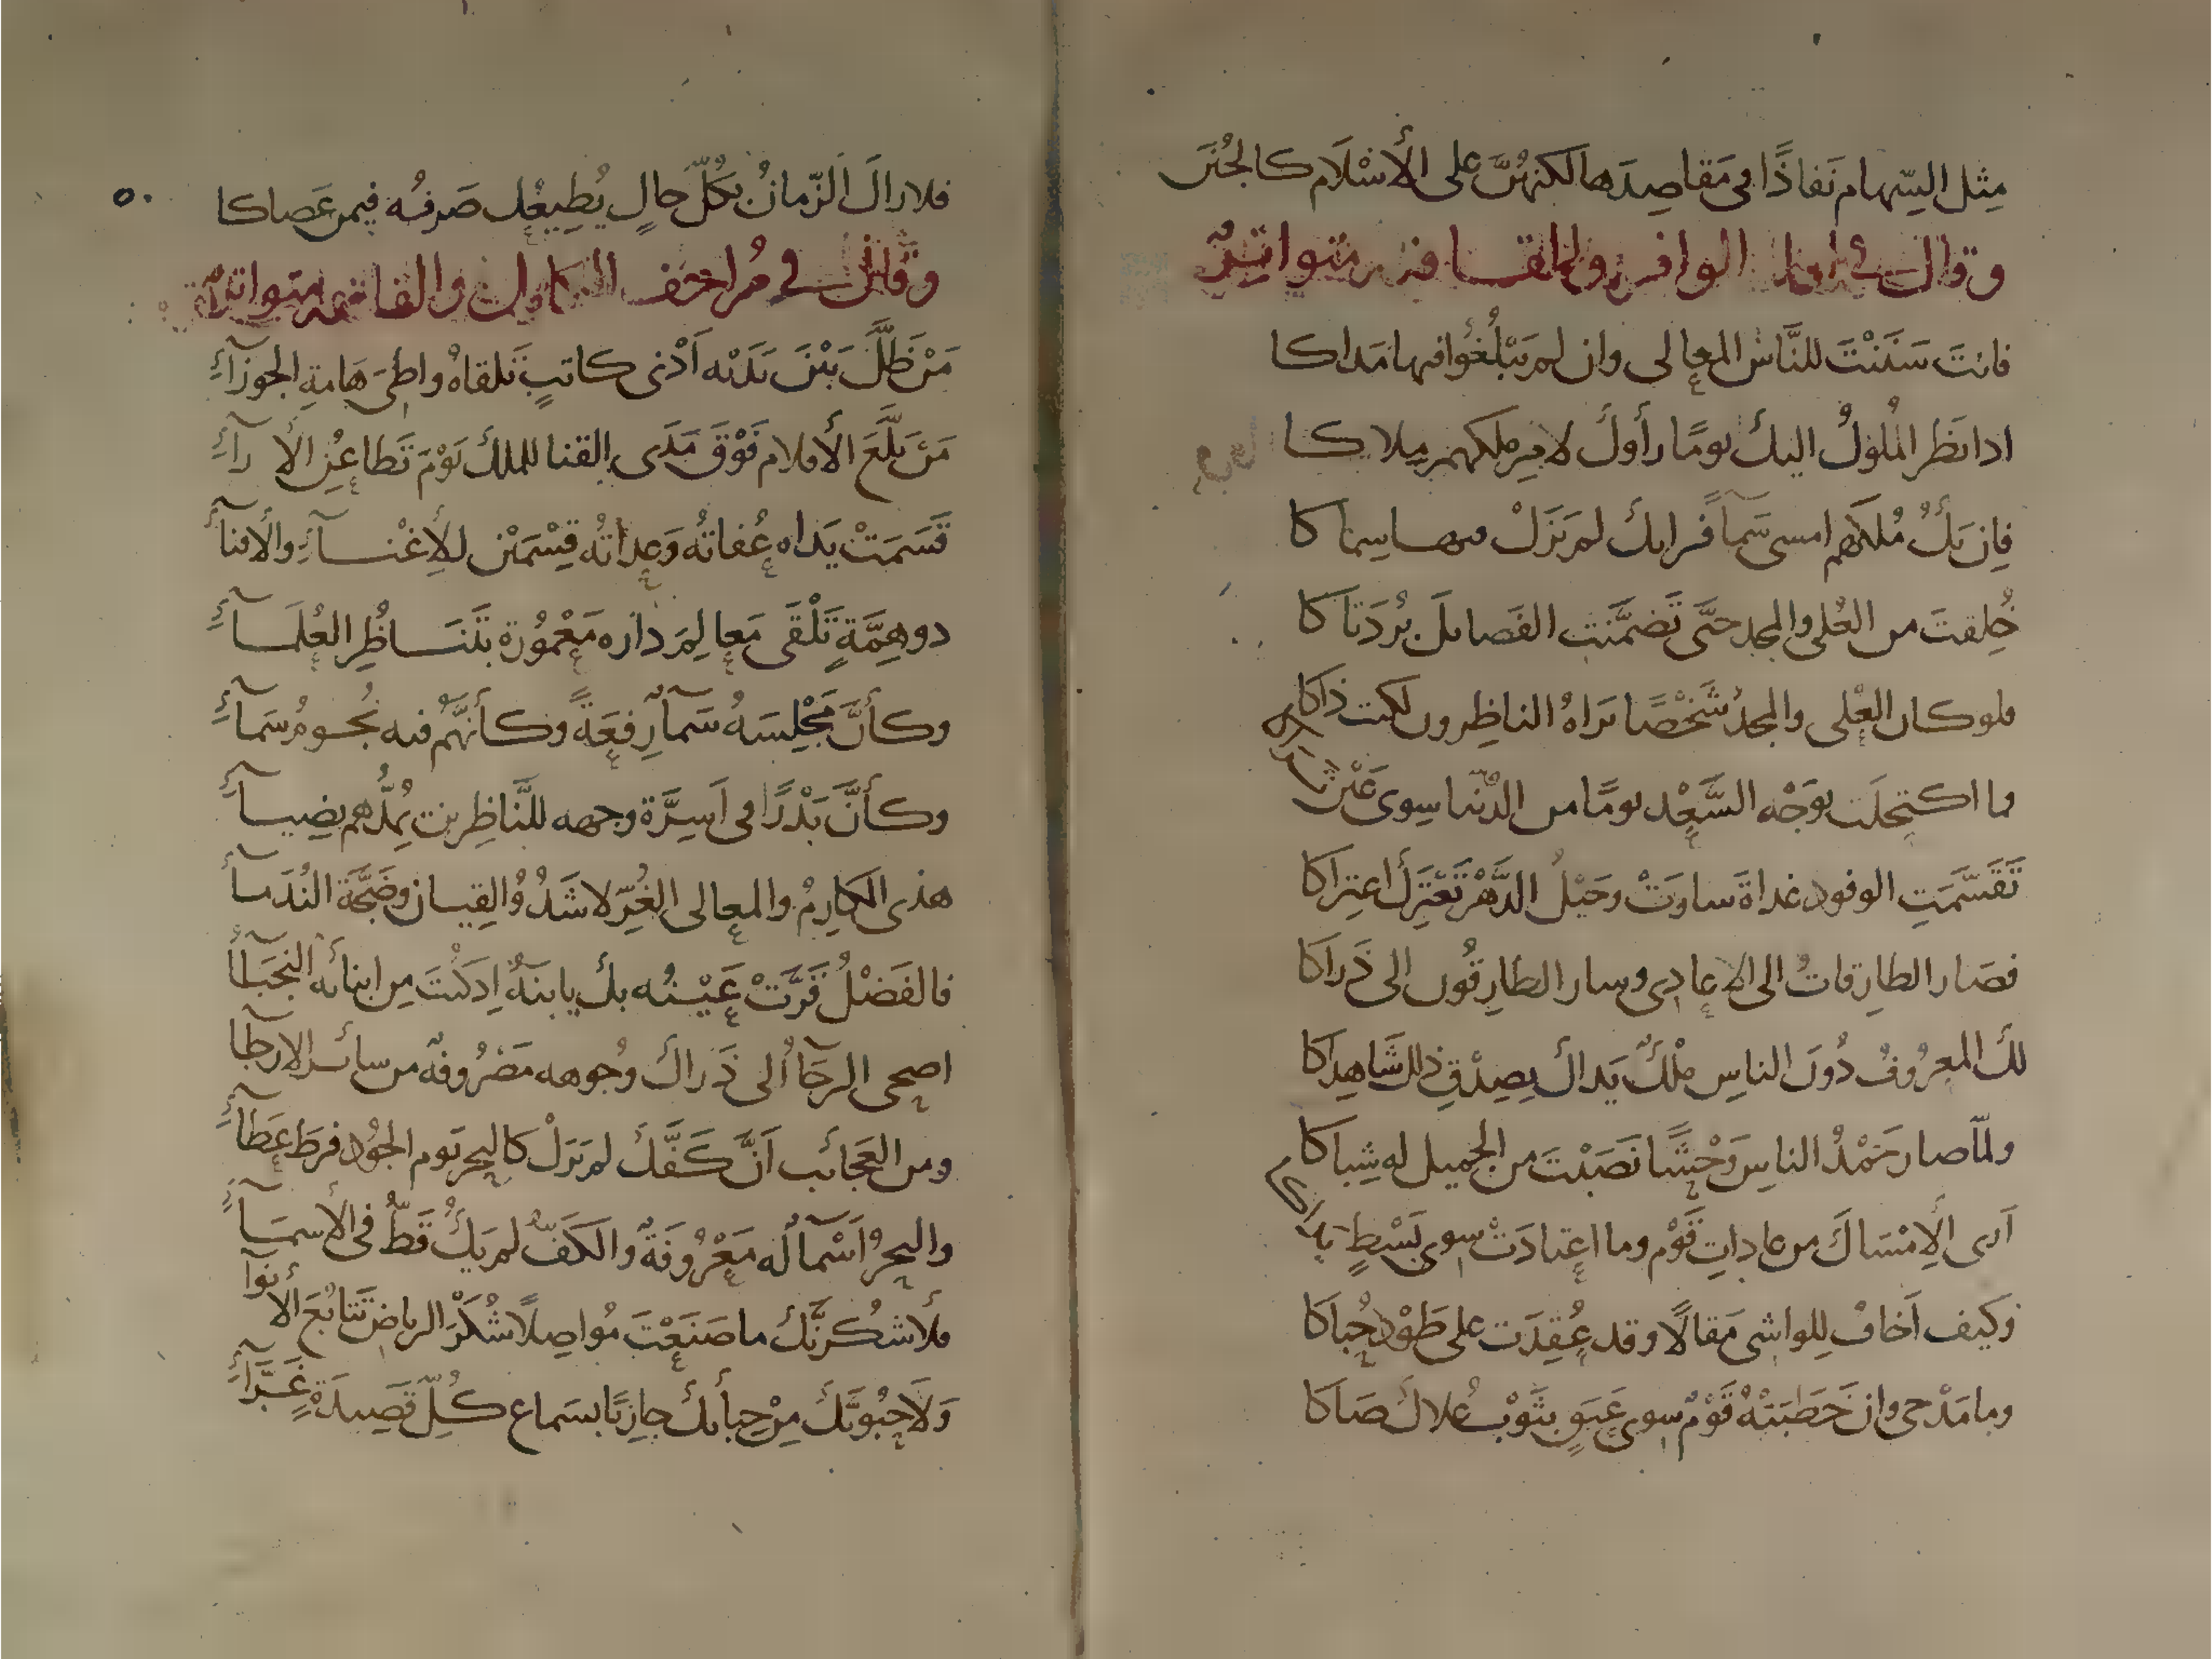 مِثل السِّهام نَفاذًا فى مَقاصِدَها لكنهنَّ على الأَسْلَام كالجُنَن
وقال فى اول الوافر والقافيه متواترٌ
فانتَ سَنَنْتَ للنَّاسِ المعالى وان لم يَبْلُغُوا فيها مَداكا
ادا نَظر المُلوكُ اليكَ يومًا رأوكَ لامرِ ملكهم ملاكا
فِان يَكُ مُلكهم امسى سَمآ فرايك لم يَزَلْ فيها سِماكا
خُلِقتَ من العُلى والمجد حتَّى تَضمَّنَت الفَصايل بُردَتاكا
فلو كان العُلى والمجدُ شَخْصًا يَراهُ الناظِرون لكنت ذاكا
فما اكتحلَت بوَجْه السَّعْد يومًا من الدُّنيا سِوى عَيْن
تَقَسَّمَتِ الوفود غداةَ ساوَتْ وخَيْلُ الدَّهْر تَعْتَرِكُ اعتِراكا
فصَار الطارِقاتُ الى الاعادِى وسار الطارِقُون الى ذَراكا
لكَ المعرُوفُ دُونَ الناسِ مِلْكٌ يَداكَ بِصِدْقِ ذلك شَاهِداكا
ولمّا صار حَمْدُ الناسِ وَحْشًا نَصَبْتَ من الجميل له شِباكا
اَرى الإمْسَاكَ من عاداتِ قَوْم وما اعتادَتْ سوى بَسْطٍ يداكا
وَكَيف اَخافُ لِلواشى مَقالًا وقد عُقِدَت على طَوْد حُباكا
وما مَدْحى وان خَطبَتهُ قَوْمٌ سِوى عَبَقٍ بثَوْبِ عُلاكَ صَاكَا
٥٠
فلا رالَ الزّمانُ بكُلّ حالٍ يُطِيعُك صَرفُه فيمن عَصاكا
وقال فى مُزاحف الكامل والقافيه متواترٌ
مَنْ ظلَّ بَيْنَ يَدَيْه اَدْنى كاتبٍ تَلقاهُ واطِئَ هَامةِ الجوزآءِ
مَن بَلَّغَ الأقلام فَوْقَ مَدَى القنا للملك يَوْمَ تَطاعُنِ الآرآءِ
قَسَمَتْ يَداه عُفاتُه وَعِداتُه قِسْمَيْن للإغْنــآءِ والأفنآءِ
دو هِمَّةٍ تَلْقَى مَعالِمَ داره مَعْمُورة بتَنَــاظُرِ العُلَمَــآءِ
وكأنَّ مَجْلِسَهُ سَمآ رِفعَةً وكأنهَّم فيه نُجــومُ سَمآءِ
وكأنَّ بَدْرًا فى اَسِرَّة وجهه للنَّاظِرين يُمدُّهم بضِيــآءِ
هذى المكارِمُ والمعالى الغُرّ لا شَدْوُ القِيــان وضَجَّة النُدَمــآءِ
فالفَضْلُ قَرَّتْ عَيْــنُه بك يا بنَهُ اِد كنْتَ مِن ابنائه النجَبــآءِ
اضحى الرجَآ الى ذَراكَ وُجوهه مَصْرُوفه من سائــر الارجآ
ومن العَجائب اَنَّ كَفَّكَ لم يَزَلْ كالبحر يَوم الجُود فرطَ عَطآءِ
والبحرُ اَسْمآ لُه مَعْرُوفَةٌ والكَفُّ لم يَكُ قَطُّ فى الأسمــآءِ
فلأشكُرنَّكَ ما صَنَعْتَ مُواصِلًا شُكْرَ الرياض تَتابُعَ الأنوآ
وَلَأحبُونَّكَ مِنْ حِبأيكَ جازِيًا بسَماع كُلِّ قَصِيدَةٍ غَرَّآءِ